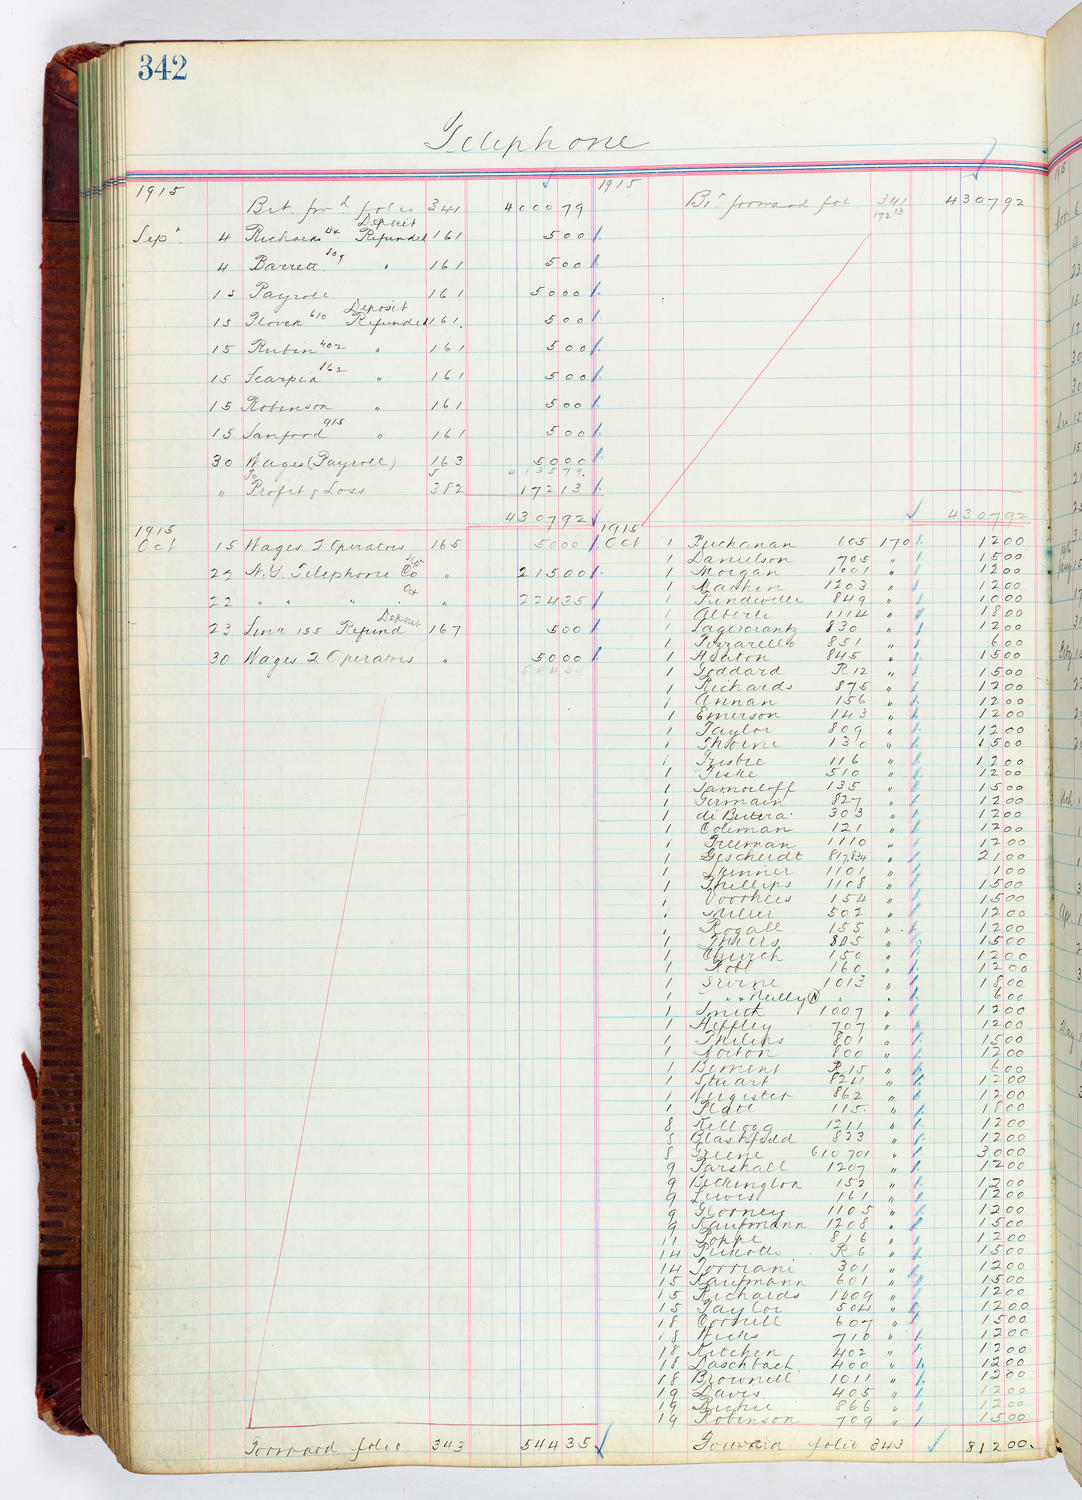 342
Telephone
1915
Brt. for'd folio 341 4000 79
Deposit
Sept. 4 Richards 44 Refunded 161 5 00
4 Barrett 809 " 161 5 00
15 Payroll 161 50 00
Deposit
15 Glover 610 Refunded 161 5 00
15 Rubin 402 " 161 5 00
15 Scarpia 162 " 161 5 00
15 Robinson " 161 5 00
15 Sanford 915 " 161 5 00
30 Wages (Payroll) 163 50 00
4135 79
" To Profit & Loss 382 172 13
4307 92
1915
Oct 15 Wages 2 Operators 165 50 00
22 N.Y. Telephone Co Sept " 215 00
22 " " " Oct " 224 35
Deposit
23 155 Refund 167 5 00
30 Wages 2 Operators " 50 00
544 35
Forward folio 343 544 35
1915
Bt. forward fol 341 4307 92
172 13
4307 92
1915
Oct 1 Buchanan 605 170 12 00
1 Danielson 705 " 15 00
1 Morgan 1001 " 12 00
1 Machen 1203 " 12 00
1 849 " 10 00
1 Alberti 1114 " 18 00
1 Lagercrantz 830 " 12 00
1 Pizzarello 851 " 6 00
1 Horton 845 " 15 00
1 Goddard R12 " 15 00
1 Richards 875 " 12 00
1 Annan 156 " 12 00
1 Emerson 143 " 12 00
1 Taylor 809 " 12 00
1 Thorne 130 " 15 00
1 Frisbie 116 " 12 00
1 Fiske 510 " 12 00
1 Samoiloff 135 " 15 00
1 Germain 827 " 12 00
1 di Butera 303 " 12 00
1 Coleman 121 " 12 00
1 Freeman 1110 " 12 00
1 Gescheidt 817,834 " 21 00
1 Skinner 1101 " 1 00
1 Phillips 1108 " 15 00
1 Voorhees 154 " 15 00
1 Miller 502 " 12 00
1 Rogall 155 " 12 00
1 Thiers 805 " 15 00
1 Church 150 " 12 00
1 Robb 160 " 12 00
1 Irvine 1013 " 18 00
1 " & Reilly (N) " " 6 00
1 Smith 1007 " 12 00
1 Heffley 707 " 12 00
1 Philips 801 " 15 00
1 Norton 800 " 12 00
1 Bement R15 " 6 00
1 Stuart 824 " 12 00
1 862 " 12 00
1 Platt 115 " 18 00
8 Kellogg 1211 " 12 00
8 Blashfield 823 " 12 00
8 Greene 610 701 " 30 00
9 Tarshall 1207 " 12 00
9 Bickington 152 " 12 00
9 Lewis 161 " 12 00
9 Glorney 1105 " 12 00
9 Kaufmann 1208 " 15 00
11 Poppe 816 " 12 00
14 Peixotto R6 " 15 00
14 Torriani 301 " 12 00
15 Kaufmann 601 " 15 00
15 Richards 1009 " 12 00
15 Taylor 504 " 12 00
18 Cornell 607 " 15 00
18 Wicks 710 " 12 00
18 Kitchen 402 " 12 00
18 Daschbach 400 " 12 00
18 Brownell 1011 " 12 00
19 Davis 405 " 12 00
19 Richie 866 " 12 00
19 Robinson 709 " 15 00
Forward folio 343 812 00